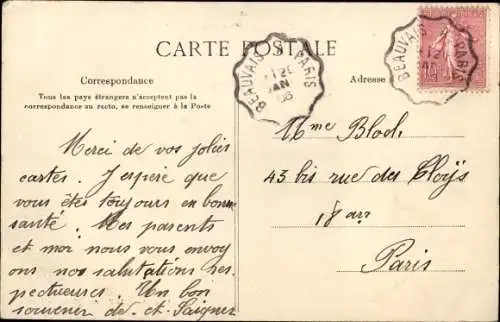 CARTE POSTALE
Correspondance
Tous les pays étrangers n'acceptent pas la
correspondance au recto, se renseigner à la Poste
Adresse
BEAUVAIS PARIS
12
JAN
06
BEAUVAIS PARIS
12
Merci de vos jolies
cartes. J'espère que
vous êtes toujours en bonne
santé. Mes parents
et moi nous vous envoy
ons nos salutations res
pectueuses. Un bon
souvenir de
Mme Bloch
43 bis rue des Cloÿs
18 arr
Paris